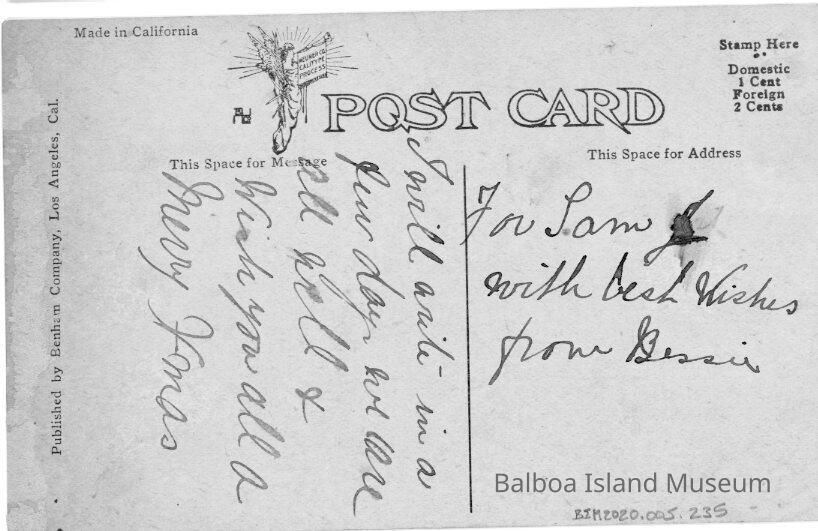 Made in California
NEUNER CO.
CALITYPE
PROCESS
POST CARD
Stamp Here
Domestic
1 Cent
Foreign
2 Cents
This Space for Message
This Space for Address
Published by Benham Company, Los Angeles, Cal.
I will write in a
few days we are
all well &
Wish you all a
Merry Xmas
For Sam
with best Wishes
from Bessie
Balboa Island Museum
BIM2020.005.235